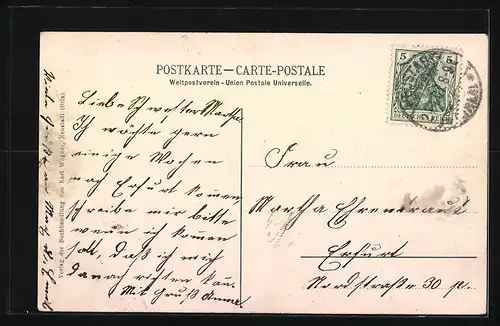 POSTKARTE – CARTE-POSTALE
Weltpostverein - Union Postale Universelle.
5
5
DEUTSCHES REICH
Liebe Schwester Martha
Ich möchte gern
einige Wochen
nach Erfurt kommen
schreibe mir bitte
wenn ich kommen
soll, daß ich mich
danach richten kan.
Mit Gruß Anna
Frau
Martha Ehrentraut
Erfurt
Nordstraße 30 p.
Verlag der Buchhandlung von Karl Wagner, Neustadt (Orla).